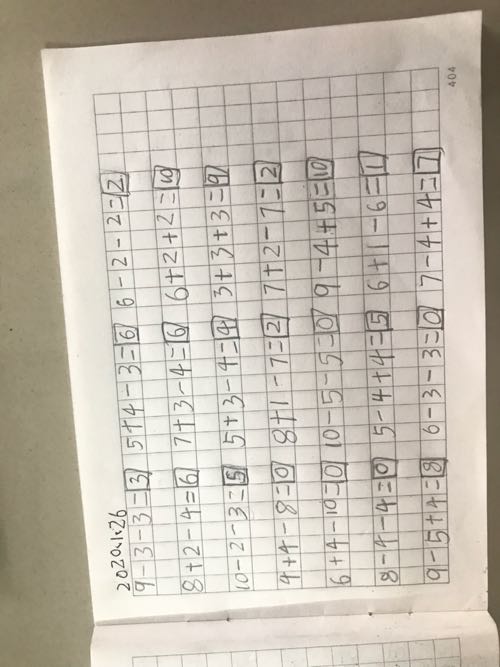 2020.1.26
9-3-3=3 5+4-3=6 6-2-2=2
8+2-4=6 7+3-4=6 6+2+2=10
10-2-3=5 5+3-4=4 3+3+3=9
4+4-8=0 8+1-7=2 7+2-7=2
6+4-10=0 10-5-5=0 9-4+5=10
8-4-4=0 5-4+4=5 6+1-6=1
9-5+4=8 6-3-3=0 7-4+4=7
404